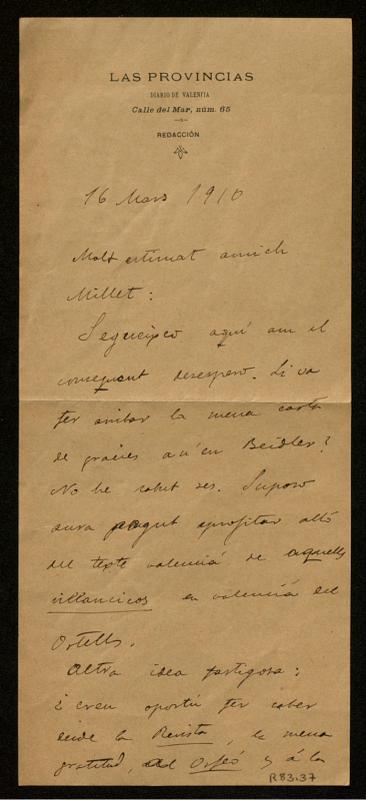 LAS PROVINCIAS
DIARIO DE VALENCIA
Calle del Mar, núm. 65
REDACCIÓN
16 Mars 1910
Molt estimat amich
Millet:
Segueixco aquí am el
consequent desespero. Li va
fer arribar la meua carta
de gracies an'en Beidler?
No he sabut res. Suposo
aura pogut aprofitar allò
del texte valenciá de aquells
villancicos en valenciá del
Ortells.
Altra idea fastigosa:
creu oportú fer saber
desde la Revista, la meua
gratitud, al Orfeó y á la
R83.37